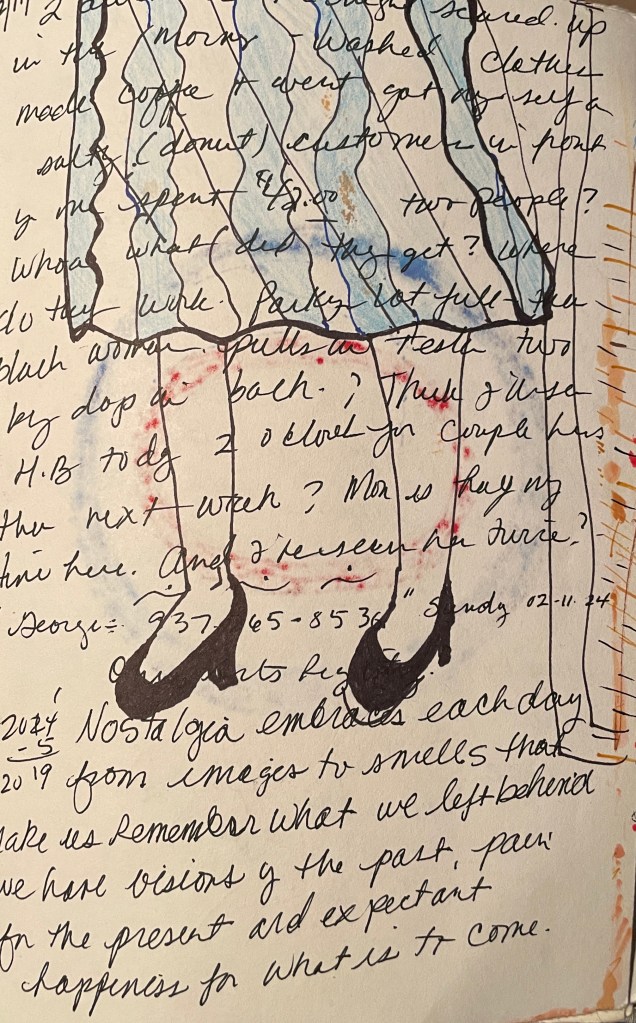 scared. up
in the morning - washed clothes
made coffee + went got my self a
salty (donut) customer in front
y me spent $12.00 two people?
Whoa what did they get? where
do they work. Parking lot full -
black woman. pulls in Tesla two
big dogs in back. ? Think I
H.B today 2 o'clock for couple hrs
next week? Mon is
time here. And I
George = 937- 65-8536 " Sunday 02-11-24
2024 Nostalgia embraces each day
-5
2019 from images to smells that
make us remember what we left behind
we have visions y the past, pain
for the present and expectant
happiness for what is to come.